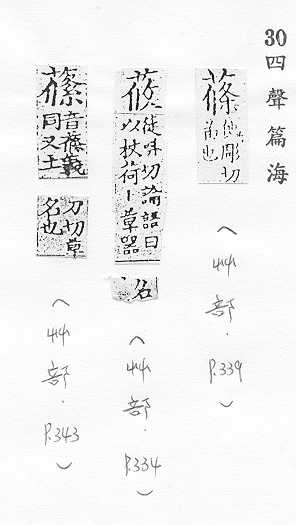 30四聲篇海
蓧
他彫切
苗也
(艸部·P.339)
莜
徒呌切論語曰
以杖荷丨草器
名
(艸部·P.334)
音蓧義
同又土
刀切草
名也
(艸部·P.343)